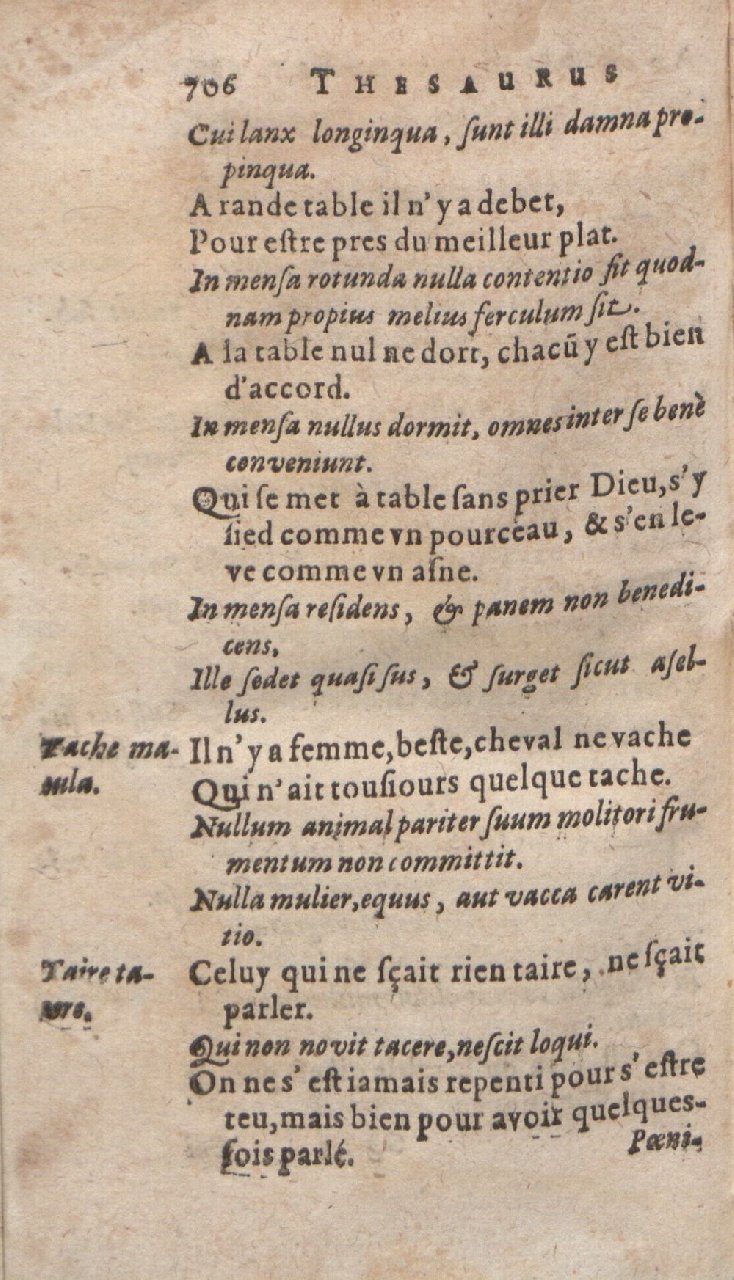 706 THESAURUS
Cui lanx longinqua, ſunt illi damna pro-
pinqua.
A rande table il n'y a debet,
Pour eſtre pres du meilleur plat.
In menſa rotunda nulla contentio fit quod-
nam propius melius ferculum ſit.
A la table nul ne dort, chacũ y eſt bien
d'accord.
In menſa nullus dormit, omnes inter ſe benè
conveniunt.
Qui ſe met à table ſans prier Dieu, s'y
ſied comme vn pourceau, & s'en le-
ve comme vn aſne.
In menſa reſidens, & panem non benedi-
cens,
Ille ſedet quaſi ſus, & ſurget ſicut aſel-
lus.
Tache ma-
cula.
Il n'y a femme, beſte, cheval ne vache
Qui n'ait touſiours quelque tache.
Nullum animal pariter ſuum molitori fru-
mentum non committit.
Nulla mulier, equus, aut vacca carent vi-
tio.
Taire ta-
cere.
Celuy qui ne ſçait rien taire, ne ſçait
parler.
Qui non novit tacere, neſcit loqui.
On ne s'eſt iamais repenti pour s'eſtre
teu, mais bien pour avoir quelques-
fois parlé.
Pœni-